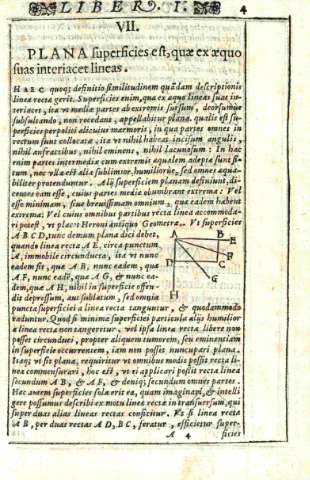 LIBER I. 4
VII.
PLANA superficies est, quæ ex æquo
suas interiacet lineas.
HAEC quoq; definitio similitudinem quãdam descriptionis
lineæ rectæ gerit. Superficies enim, quæ ex æquo lineas suas in-
teriacet, ita vt mediæ partes ab extremis sursum, deorsumue
subsultando, non recedant, appellabitur plana. qualis est su-
perficies perpoliti alicuius marmoris, in qua partes omnes in
rectum sunt collocatæ, ita vt nihil habeat incisum angulis,
nihil anfractibus, nihil eminens, nihil lacunosum: In hac
enim partes intermediæ cum extremis æqualem adeptæ sunt si-
tum, nec vlla est alia sublimior, humiliorue, sed omnes æqua-
biliter protenduntur. Alij superficiem planam definiunt, di-
centes eam esse, cuius partes mediæ obumbrant extrema: Vel
esse minimam, siue breuissimam omnium, quæ eadem habent
extrema: Vel cuius omnibus partibus recta linea accommoda-
ri potest, vt placet Heroni antiquo Geometræ. Vt superficies
ABCD, tunc demum plana dici debet,
quando linea recta AE, circa punctum
A, immobile circumducta, ita vt nunc
eadem sit, quæ AB, nunc eadem, quæ
AF, nunc eadẽ, quæ AG, & nunc ea-
dem, quæ AH, nihil in superficie offen-
dit depressum, aut sublatum, sed omnia
A B E F D C G H
puncta superficiei à linea recta tanguntur, & quodammodo
raduntur. Quod si minima superficiei particula alijs humilior
à linea recta non tangeretur, vel ipsa linea recta libere non
posset circumduci, propter aliquem tumorem, seu eminentiam
in superficie occurrentem, iam non posset nuncupari plana.
Itaq; vt sit plana, requiritur vt omnibus modis possit recta li-
nea commensurari, hoc est, vt ei applicari possit recta linea
secundum AB, & AF, & deniq; secundum omnes partes.
Hæc autem superficies sola erit ea, quam imaginari, & intelli
gere possumus describi ex motu lineæ rectæ in transuersum, qui
super duas alias lineas rectas conficitur. Vt si linea recta
AB, per duas rectas AD, BC, feratur, efficietur super-
A 4 ficies